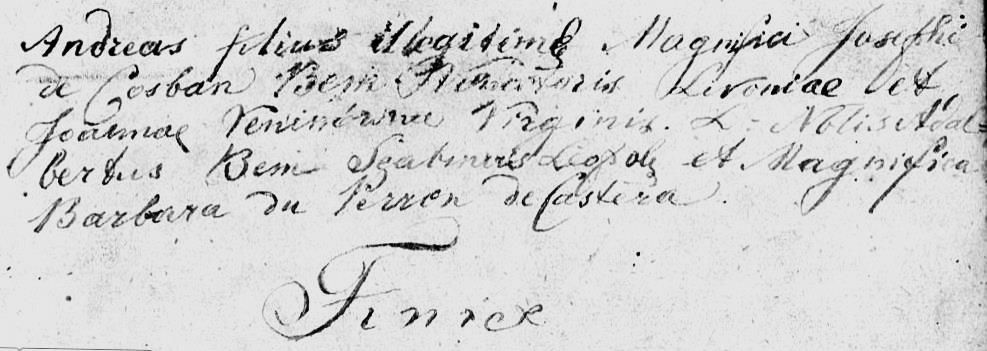 Andreas filius illegitimę Magnifici Josephi
de Cosban Bem Venatoris Livoniae et
Joannae Virginis. L = Nblis Adal=
bertus Bem Scabineris Leopolę et Magnifica
Barbara du Perron de Castera.
Finiex